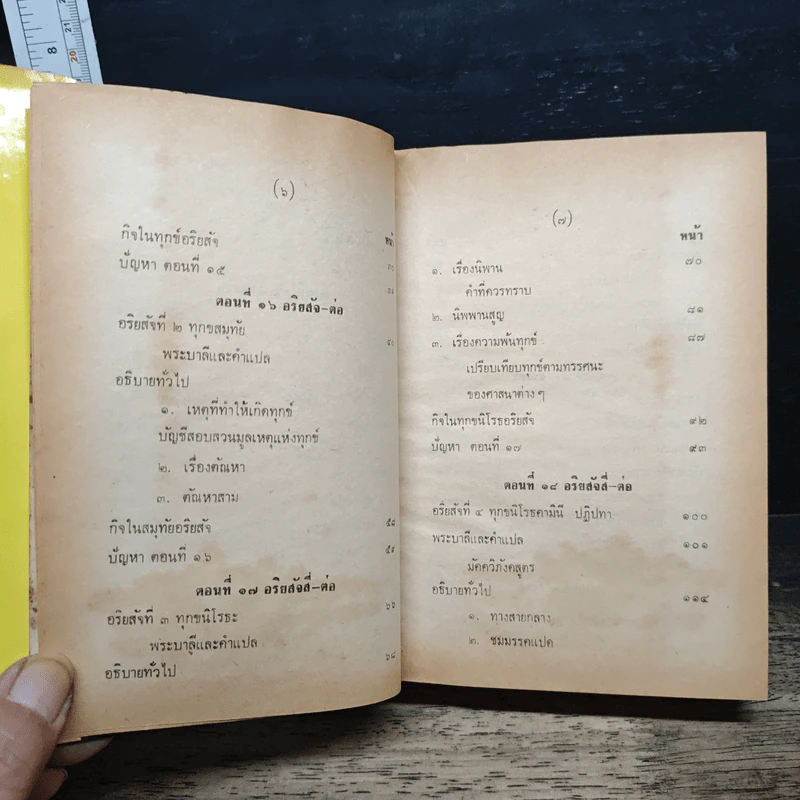 (๖)
หน้า
กิจในทุกข์อริยสัจ
ปัญหา ตอนที่ ๑๕
ตอนที่ ๑๖ อริยสัจ-ต่อ
อริยสัจที่ ๒ ทุกขสมุทัย
พระบาลีและคำแปล
อธิบายทั่วไป
๑. เหตุที่ทำให้เกิดทุกข์
บัญชีสอบสวนมูลเหตุแห่งทุกข์
๒. เรื่องตัณหา
๓. ตัณหาสาม
กิจในสมุทัยอริยสัจ ๕๘
ปัญหา ตอนที่ ๑๖ ๕๙
ตอนที่ ๑๗ อริยสัจสี่-ต่อ
อริยสัจที่ ๓ ทุกขนิโรธะ ๖๖
พระบาลีและคำแปล
อธิบายทั่วไป ๖๘
(๗)
หน้า
๑. เรื่องนิพาน ๗๐
คำที่ควรทราบ
๒. นิพพานสูญ ๘๑
๓. เรื่องความพ้นทุกข์ ๘๗
เปรียบเทียบทุกข์ตามทรรศนะ
ของศาสนาต่าง ๆ
กิจในทุกขนิโรธอริยสัจ ๙๒
ปัญหา ตอนที่ ๑๗ ๙๓
ตอนที่ ๑๘ อริยสัจสี่-ต่อ
อริยสัจที่ ๔ ทุกขนิโรธคามินี ปฏิปทา ๑๐๐
พระบาลีและคำแปล ๑๐๑
มัคควิภังคสูตร
อธิบายทั่วไป ๑๑๔
๑. ทางสายกลาง
๒. ชมมรรคแปด
8
20
21